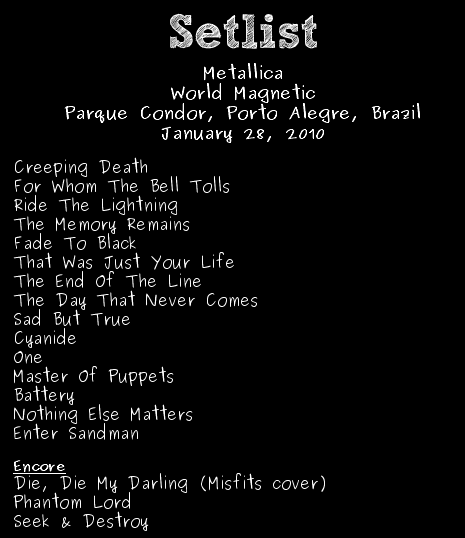 Setlist
Metallica
World Magnetic
Parque Condor, Porto Alegre, Brazil
January 28, 2010
Creeping Death
For Whom The Bell Tolls
Ride The Lightning
The Memory Remains
Fade To Black
That Was Just Your Life
The End Of The Line
The Day That Never Comes
Sad But True
Cyanide
One
Master Of Puppets
Battery
Nothing Else Matters
Enter Sandman
Encore
Die, Die My Darling (Misfits cover)
Phantom Lord
Seek & Destroy